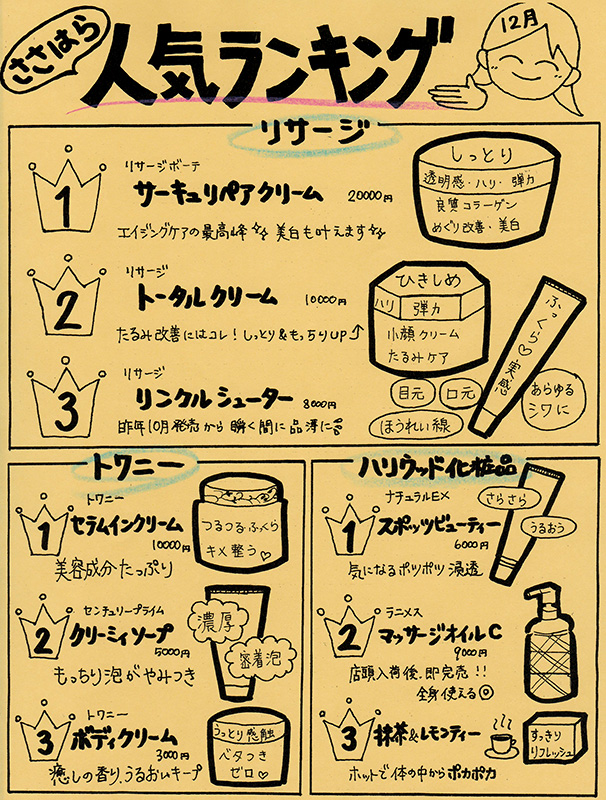 ささはら
人気ランキング
12月
リサージ
1
リサージボーテ
サーキュリペアクリーム 20000円
エイジングケアの最高峰☆☆ 美白も叶えます☆☆
しっとり
透明感・ハリ・弾力
良質コラーゲン
めぐり改善・美白
2
リサージ
トータルクリーム 10000円
たるみ改善にはコレ！しっとり&もっちりUP↑
ひきしめ
ハリ 弾力
小顔クリーム
たるみケア
3
リサージ
リンクルシューター 8000円
昨年10月発売から瞬く間に品薄に
ふっくら♡実感
目元
口元
ほうれい線
あらゆる
シワに
トワニー
1
トワニー
セラムインクリーム
10000円
美容成分たっぷり
つるつるふっくら
キメ整う♡
2
センチュリープライム
クリーミィソープ
5000円
もっちり泡がやみつき
濃厚
密着泡
3
トワニー
ボディクリーム
3000円
癒しの香り、うるおいキープ
うっとり感触
ベタつき
ゼロ♡
ハリウッド化粧品
1
ナチュラルEX
スポッツビューティー
6000円
気になるポツポツ浸透
さらさら
うるおう
2
ラニメス
マッサージオイルC
9000円
店頭入荷後、即完売！！
全身使える◎
3
抹茶&レモンティー
ホットで体の中からポカポカ
すっきり
リフレッシュ